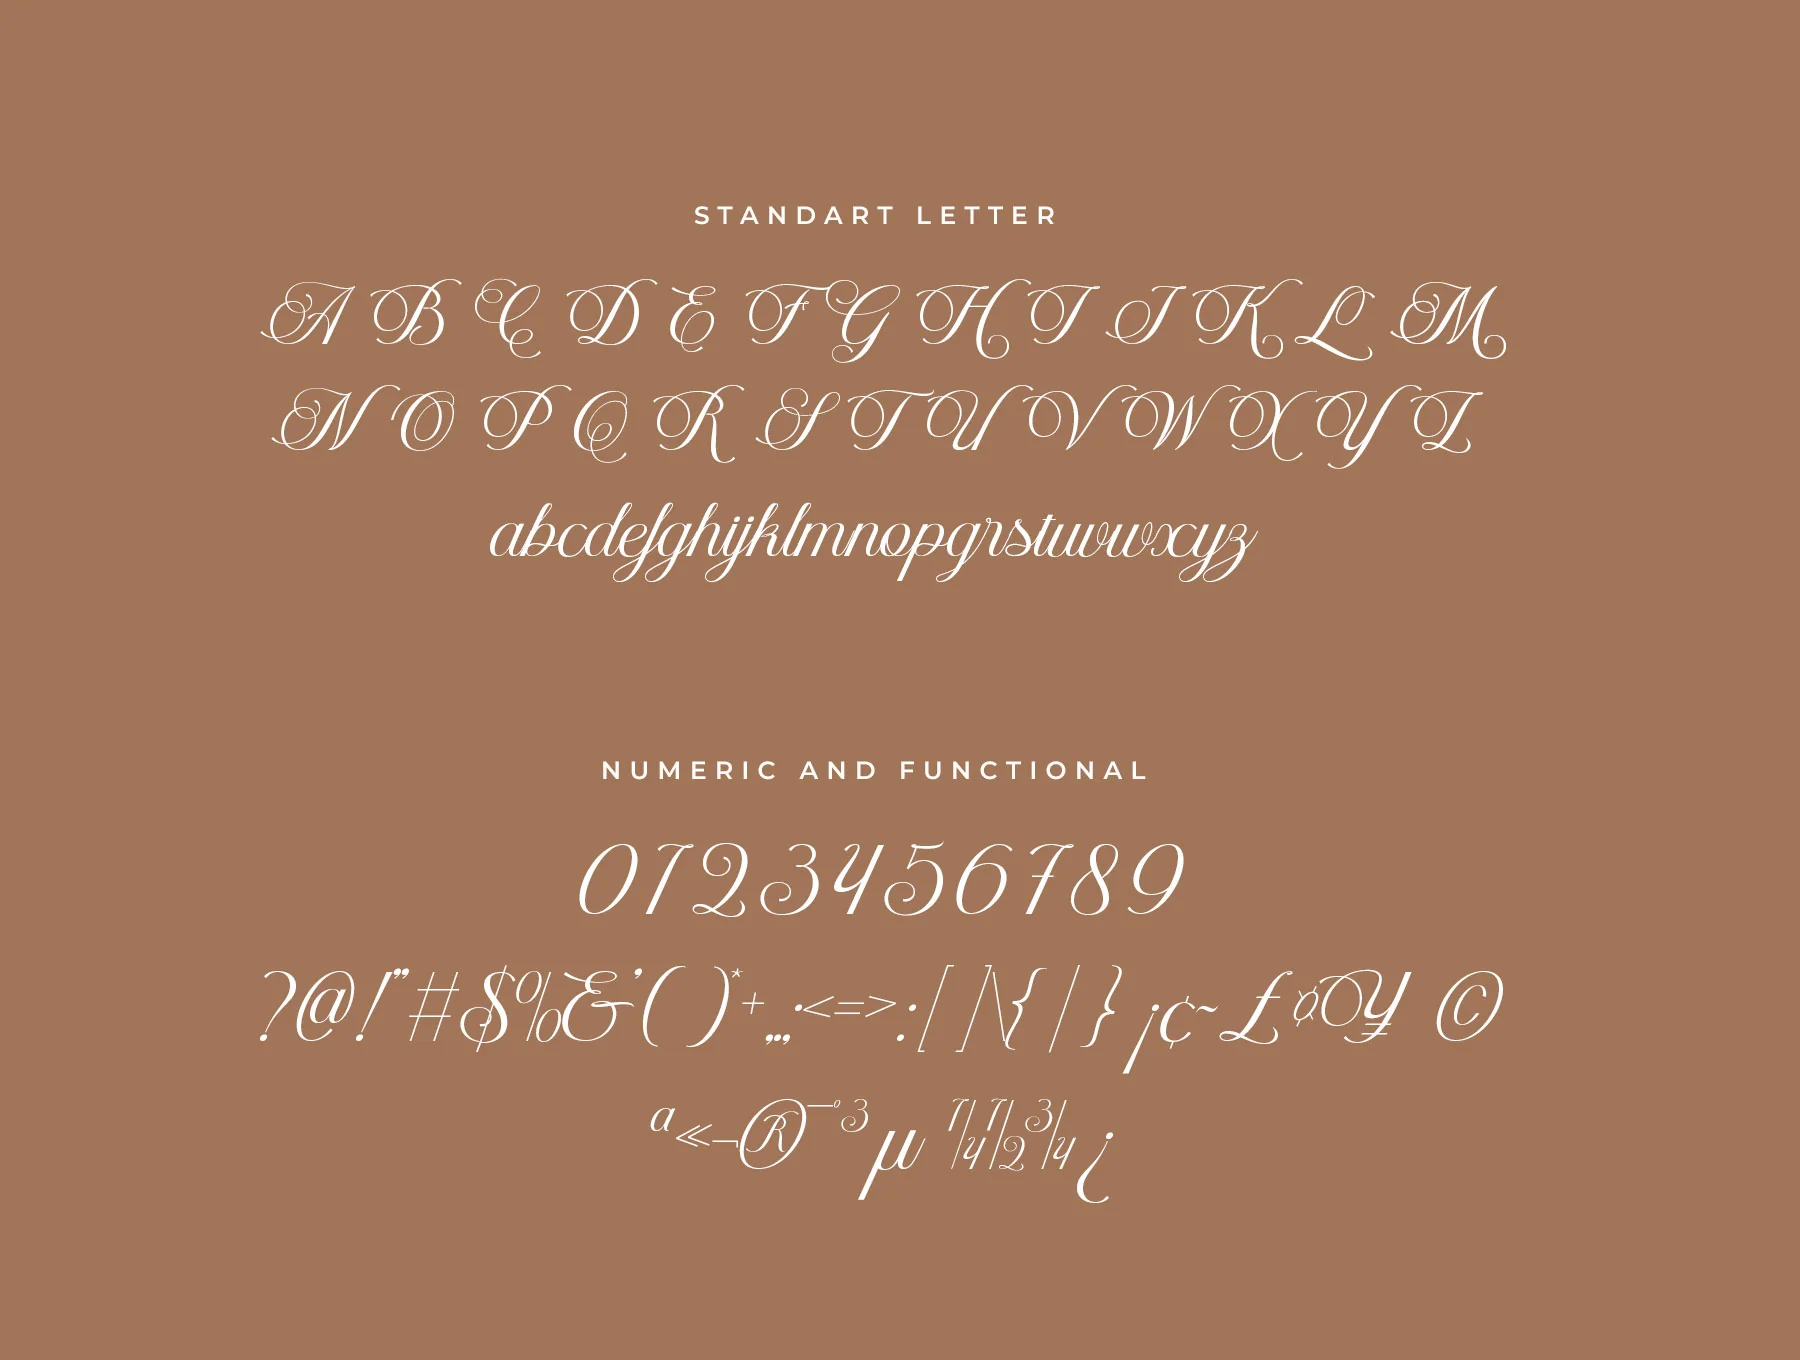 STANDART LETTER
A B C D E F G H I J K L M
N O P Q R S T U V W X Y Z
abcdefghijklmnopqrstuvwxyz
NUMERIC AND FUNCTIONAL
0123456789
?@!"#$%&'( )*+,.;<=>:[ ]\{ | }¡¢~£¤¥ ©
ª«¬®¯º³µ ¼½¾¿